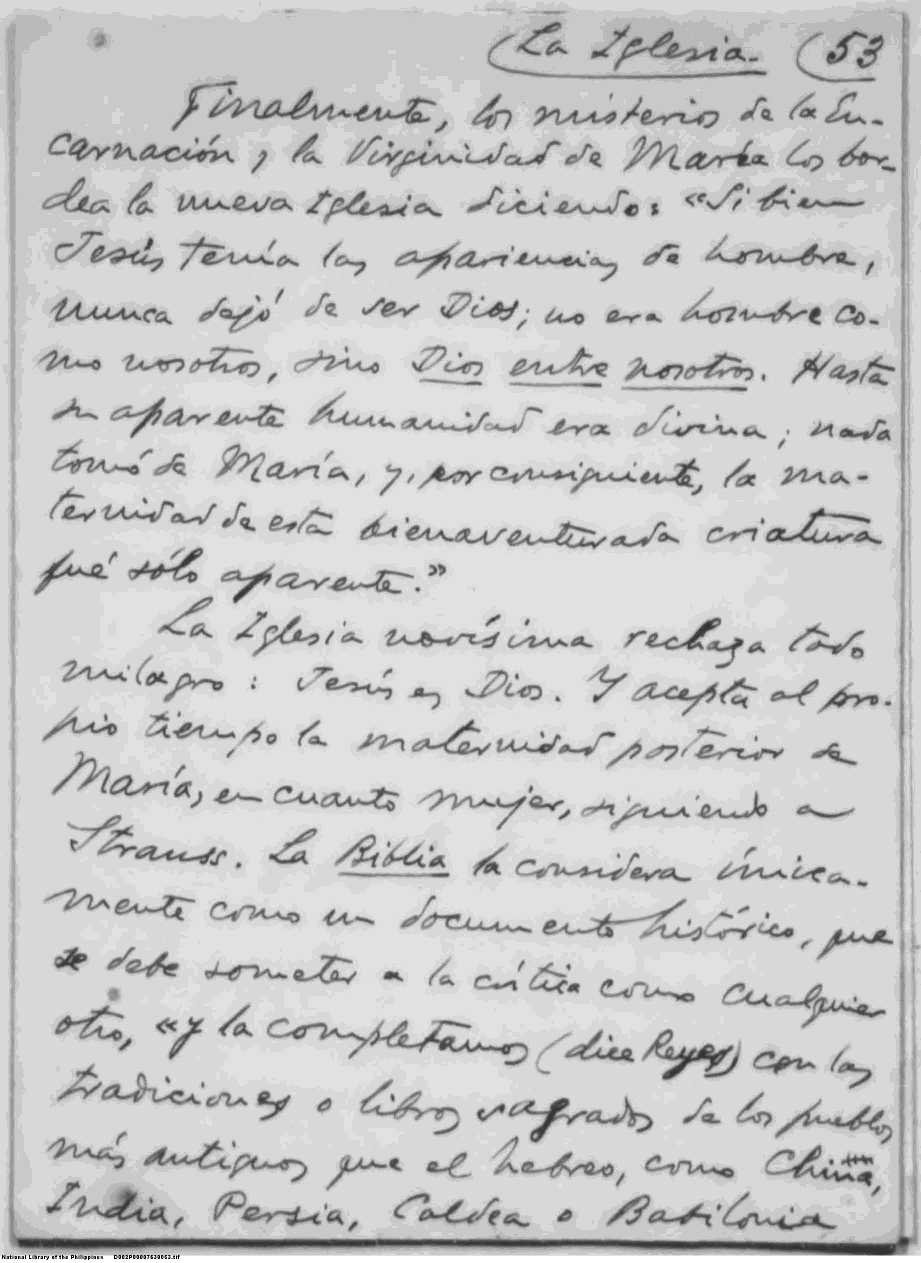 La Iglesia. 53
Finalmente, los misterios de la En-
carnación y la Virginidad de María los bor-
dea la nueva Iglesia diciendo: «Si bien
Jesús tenía las apariencias de hombre,
nunca dejó de ser Dios; no era hombre co-
mo nosotros, sino Dios entre nosotros. Hasta
su aparente humanidad era divina; nada
tomó de María, y, por consiguiente, la ma-
ternidad de esta bienaventurada criatura
fué sólo aparente.”
La Iglesia novísima rechaza todo
milagro: Jesús es Dios. Y acepta al pro-
pio tiempo la maternidad posterior de
María, en cuanto mujer, siguiendo a
Strauss. La Biblia la considera única-
mente como un documento histórico, que
se debe someter a la crítica como cualquier
otro, «y la completamos (dice Reyes) con las
tradiciones o libros sagrados de los pueblos
más antiguos que el hebreo, como China,
India, Persia, Caldea o Babilonia
National Library of the Philippines D002P00007630053.tif